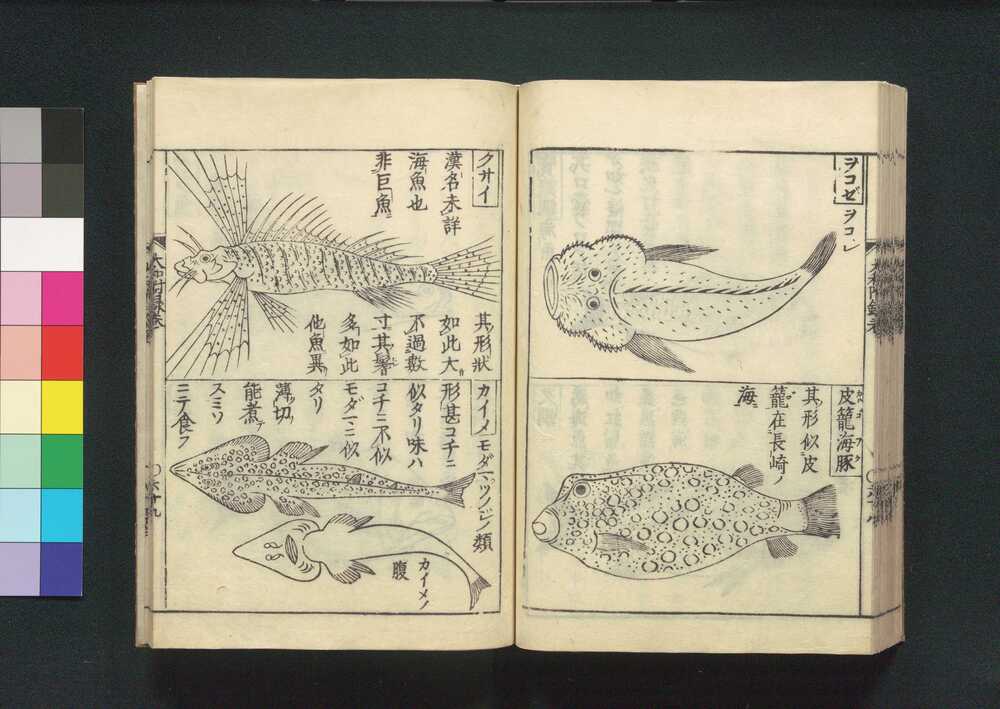 ヲコゼ ヲコシ
皮籠海豚
其形似皮
籠在長崎ノ
海ニ
クサイ
漢名未詳
海魚也
非巨魚ニ
其形状
如此大サ
不過数
寸其鬐
多如此
他魚異
カイメ モダマツノジノ類
形甚コチニ
似タリ味ハ
コチニ不似
モダマニ似
タリ
薄切
能煮テ
スミソ
ニテ食フ
カイメノ
腹
大和本草附録巻